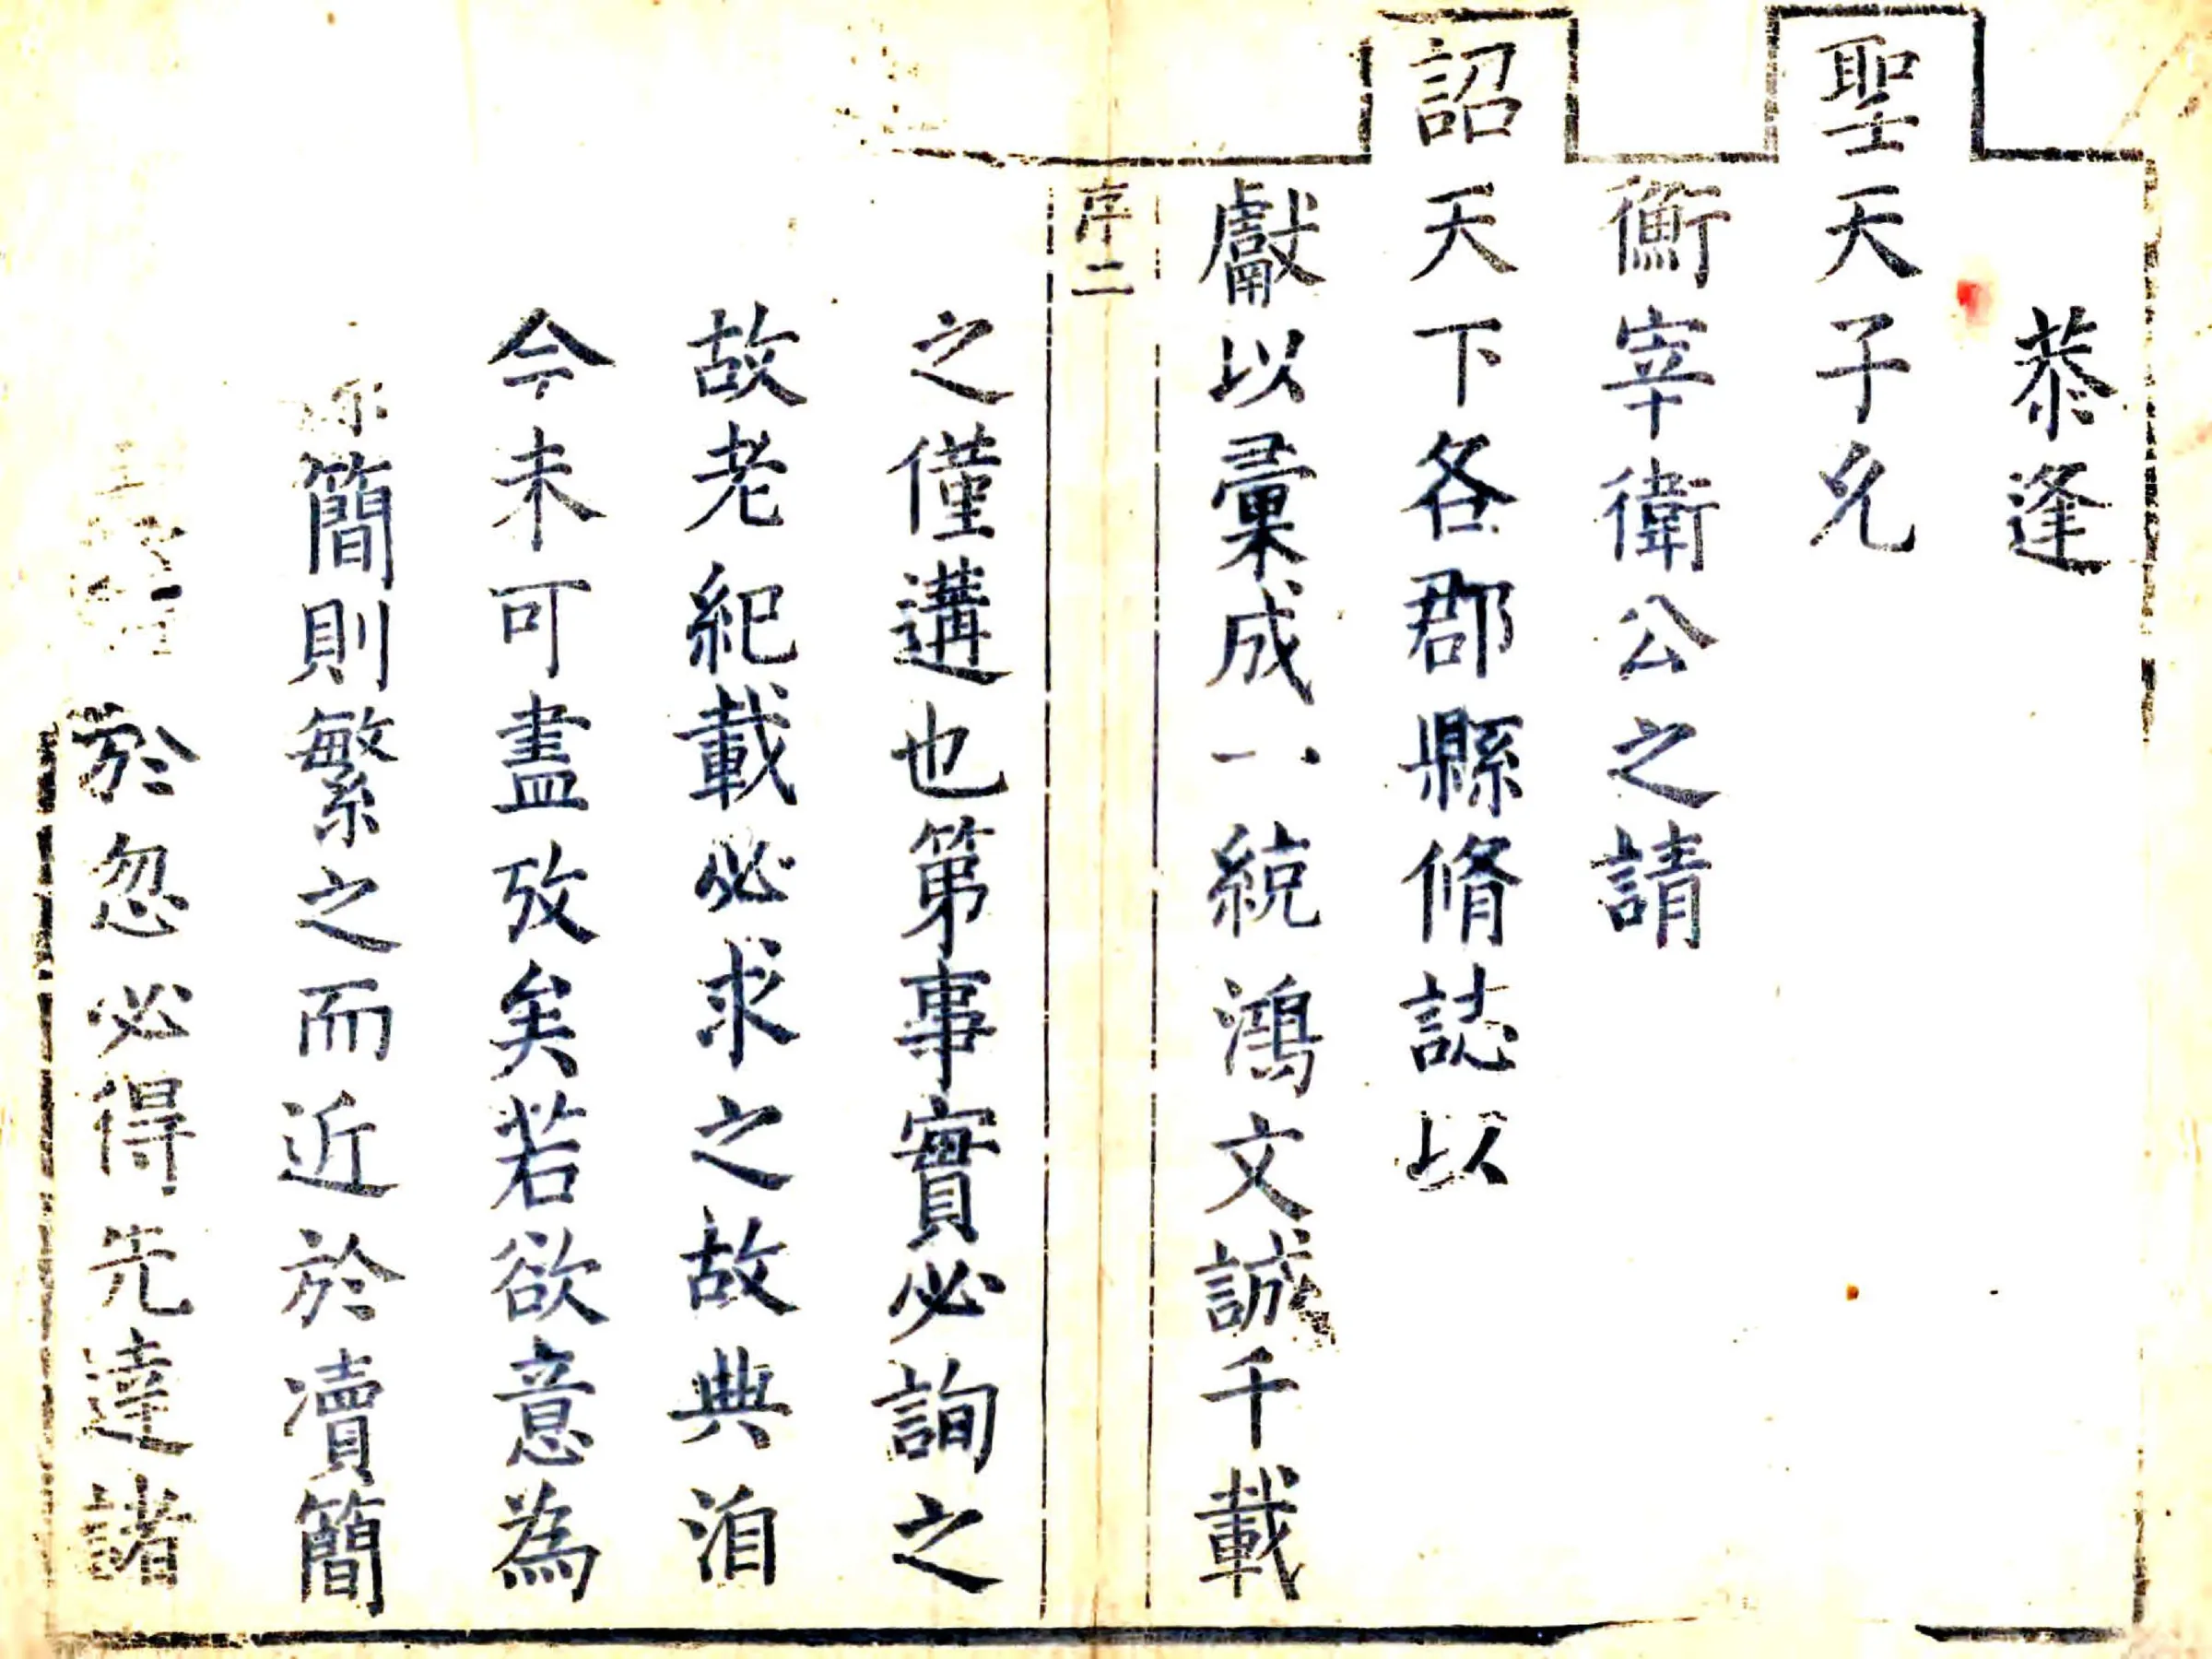 恭逢
聖天子允
衡宰衛公之請
詔天下各郡縣脩誌以
獻以彙成一統鴻文誠千載
序二
之僅遘也第事實必詢之
故老紀載必求之故典洎
今未可盡攷矣若欲意為
簡則繁之而近於瀆簡
於忽必得先達諸